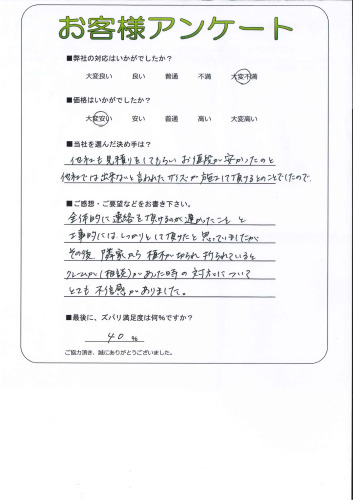 お客様アンケート
■弊社の対応はいかがでしたか?
大変良い 良い 普通 不満 大変不満
■価格はいかがでしたか?
大変安い 安い 普通 高い 大変高い
■当社を選んだ決め手は?
他社も見積りをしてもらい お値段が安かったのと
他社では出来ないと言われた サイズが施工して頂けるとのことでしたので。
■ご感想・ご要望などをお書き下さい。
全体的に連絡を頂けるのが遅かったことと
工事的にはしっかりとして頂けたと思っていましたが、
その後 隣家から 植木が切られ折られていると
クレームが(相談)があった時の対応について
とても不信感がありました。
■最後に、ズバリ満足度は何%ですか?
40 %
ご協力頂き、誠にありがとうございました。